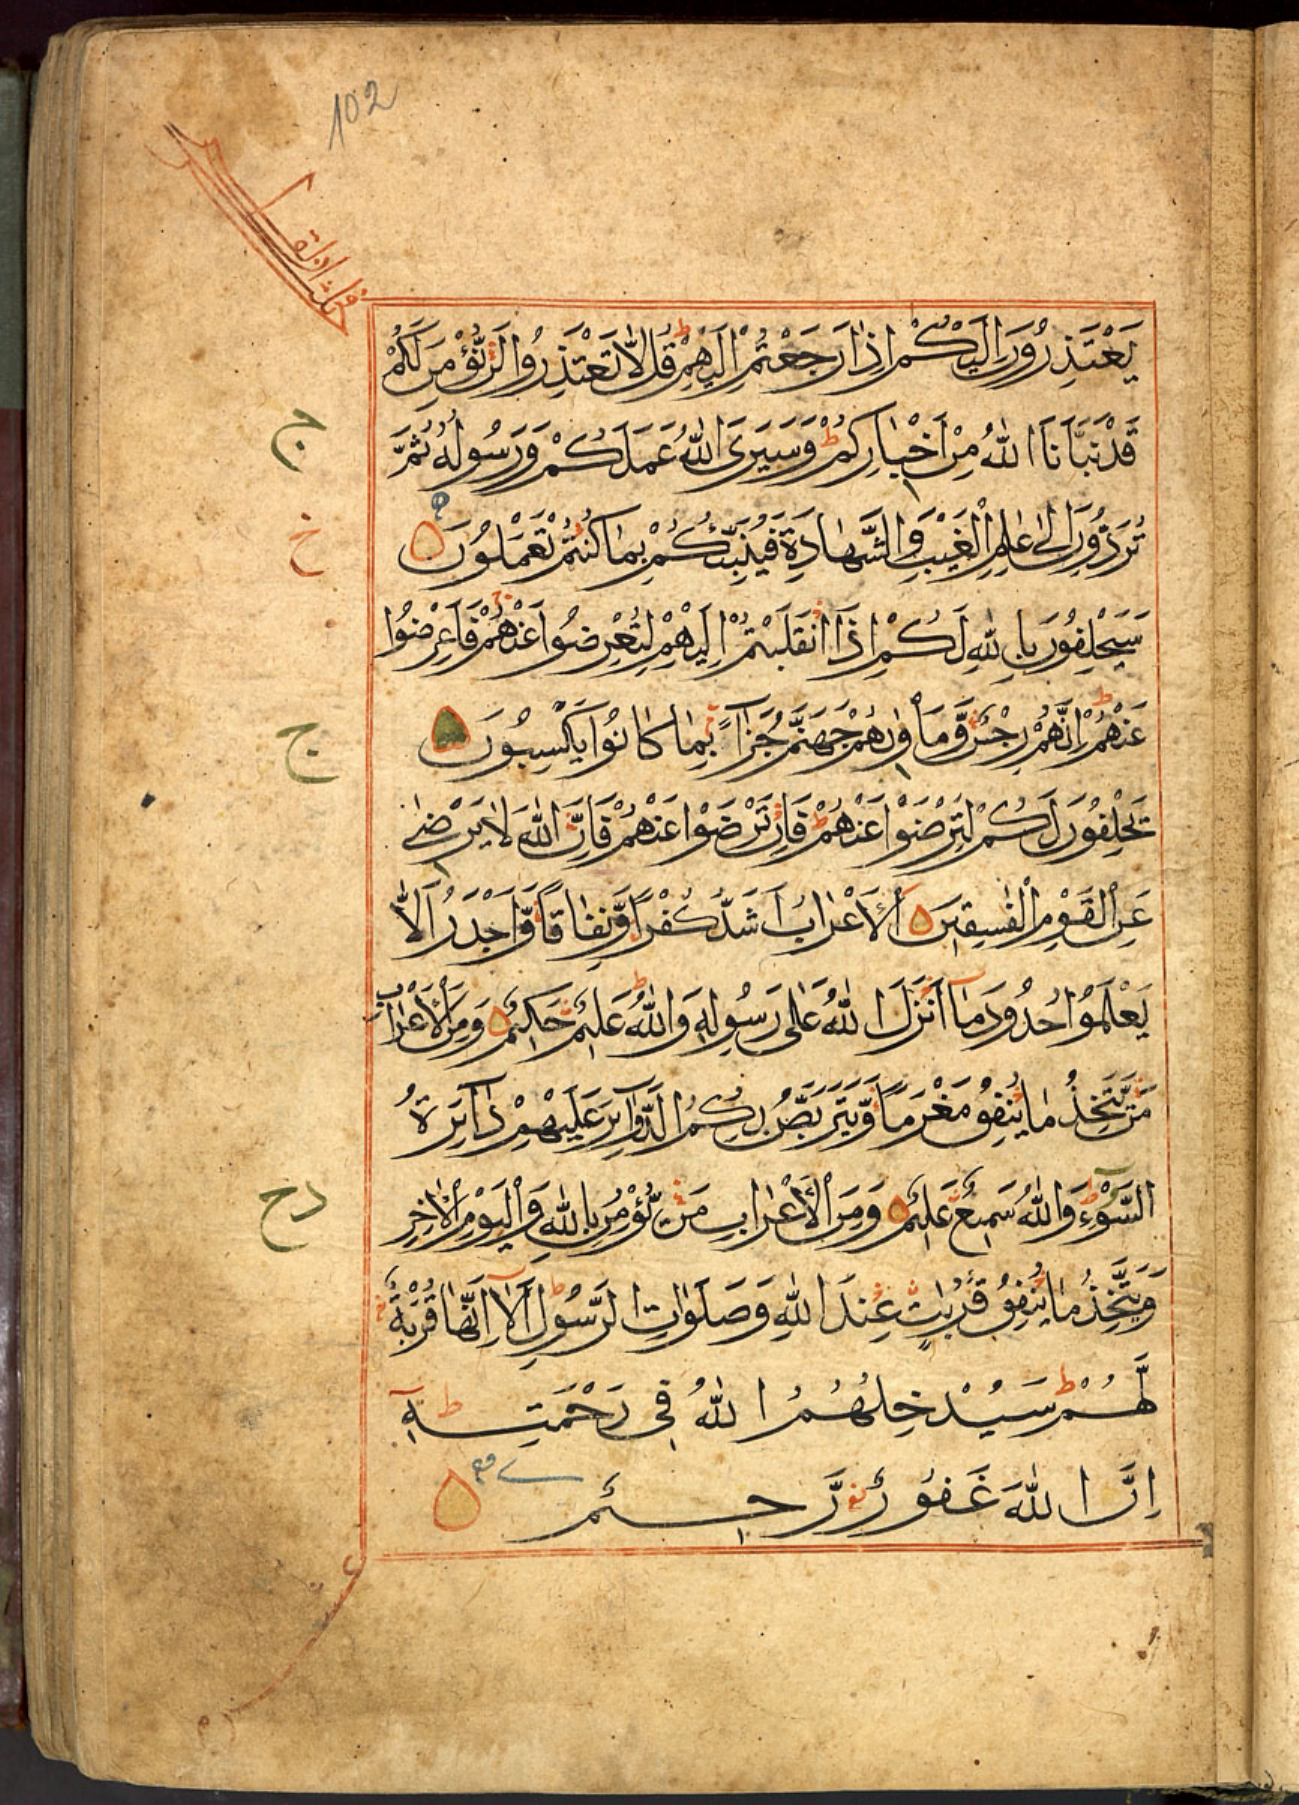 102
يَعْتَذِرُونَ اِلَيْكُمْ اِذَا رَجَعْتُمْ اِلَيْهِمْ ط قُلْ لَّا تَعْتَذِرُوا لَنْ نُّؤْمِنَ لَكُمْ
قَدْ نَبَّاَنَا اللّٰهُ مِنْ اَخْبَارِكُمْ ط وَسَيَرَى اللّٰهُ عَمَلَكُمْ وَرَسُولُهُ ثُمَّ
تُرَدُّونَ اِلٰى عٰلِمِ الْغَيْبِ وَالشَّهَادَةِ فَيُنَبِّئُكُمْ بِمَا كُنْتُمْ تَعْمَلُونَ
سَيَحْلِفُونَ بِاللّٰهِ لَكُمْ اِذَا انْقَلَبْتُمْ اِلَيْهِمْ لِتُعْرِضُوا عَنْهُمْ فَاَعْرِضُوا
عَنْهُمْ ط اِنَّهُمْ رِجْسٌ وَّمَاْوٰىهُمْ جَهَنَّمُ جَزَآءً بِمَا كَانُوا يَكْسِبُونَ
يَحْلِفُونَ لَكُمْ لِتَرْضَوْا عَنْهُمْ ط فَاِنْ تَرْضَوْا عَنْهُمْ فَاِنَّ اللّٰهَ لَا يَرْضٰى
عَنِ الْقَوْمِ الْفٰسِقِينَ اَلْاَعْرَابُ اَشَدُّ كُفْرًا وَّنِفَاقًا وَّاَجْدَرُ اَلَّا
يَعْلَمُوا حُدُودَ مَآ اَنْزَلَ اللّٰهُ عَلٰى رَسُولِهِ ط وَاللّٰهُ عَلِيمٌ حَكِيمٌ وَمِنَ الْاَعْرَابِ
مَنْ يَّتَّخِذُ مَا يُنْفِقُ مَغْرَمًا وَّيَتَرَبَّصُ بِكُمُ الدَّوَآئِرَ عَلَيْهِمْ دَآئِرَةُ
السَّوْءِ ط وَاللّٰهُ سَمِيعٌ عَلِيمٌ وَمِنَ الْاَعْرَابِ مَنْ يُّؤْمِنُ بِاللّٰهِ وَالْيَوْمِ الْاٰخِرِ
وَيَتَّخِذُ مَا يُنْفِقُ قُرُبٰتٍ عِنْدَ اللّٰهِ وَصَلَوٰاتِ الرَّسُولِ ط اَلَآ اِنَّهَا قُرْبَةٌ
لَّهُمْ ط سَيُدْخِلُهُمُ اللّٰهُ فِى رَحْمَتِهِ ط
اِنَّ اللّٰهَ غَفُورٌ رَّحِيمٌ
ج
خ
ج
دح